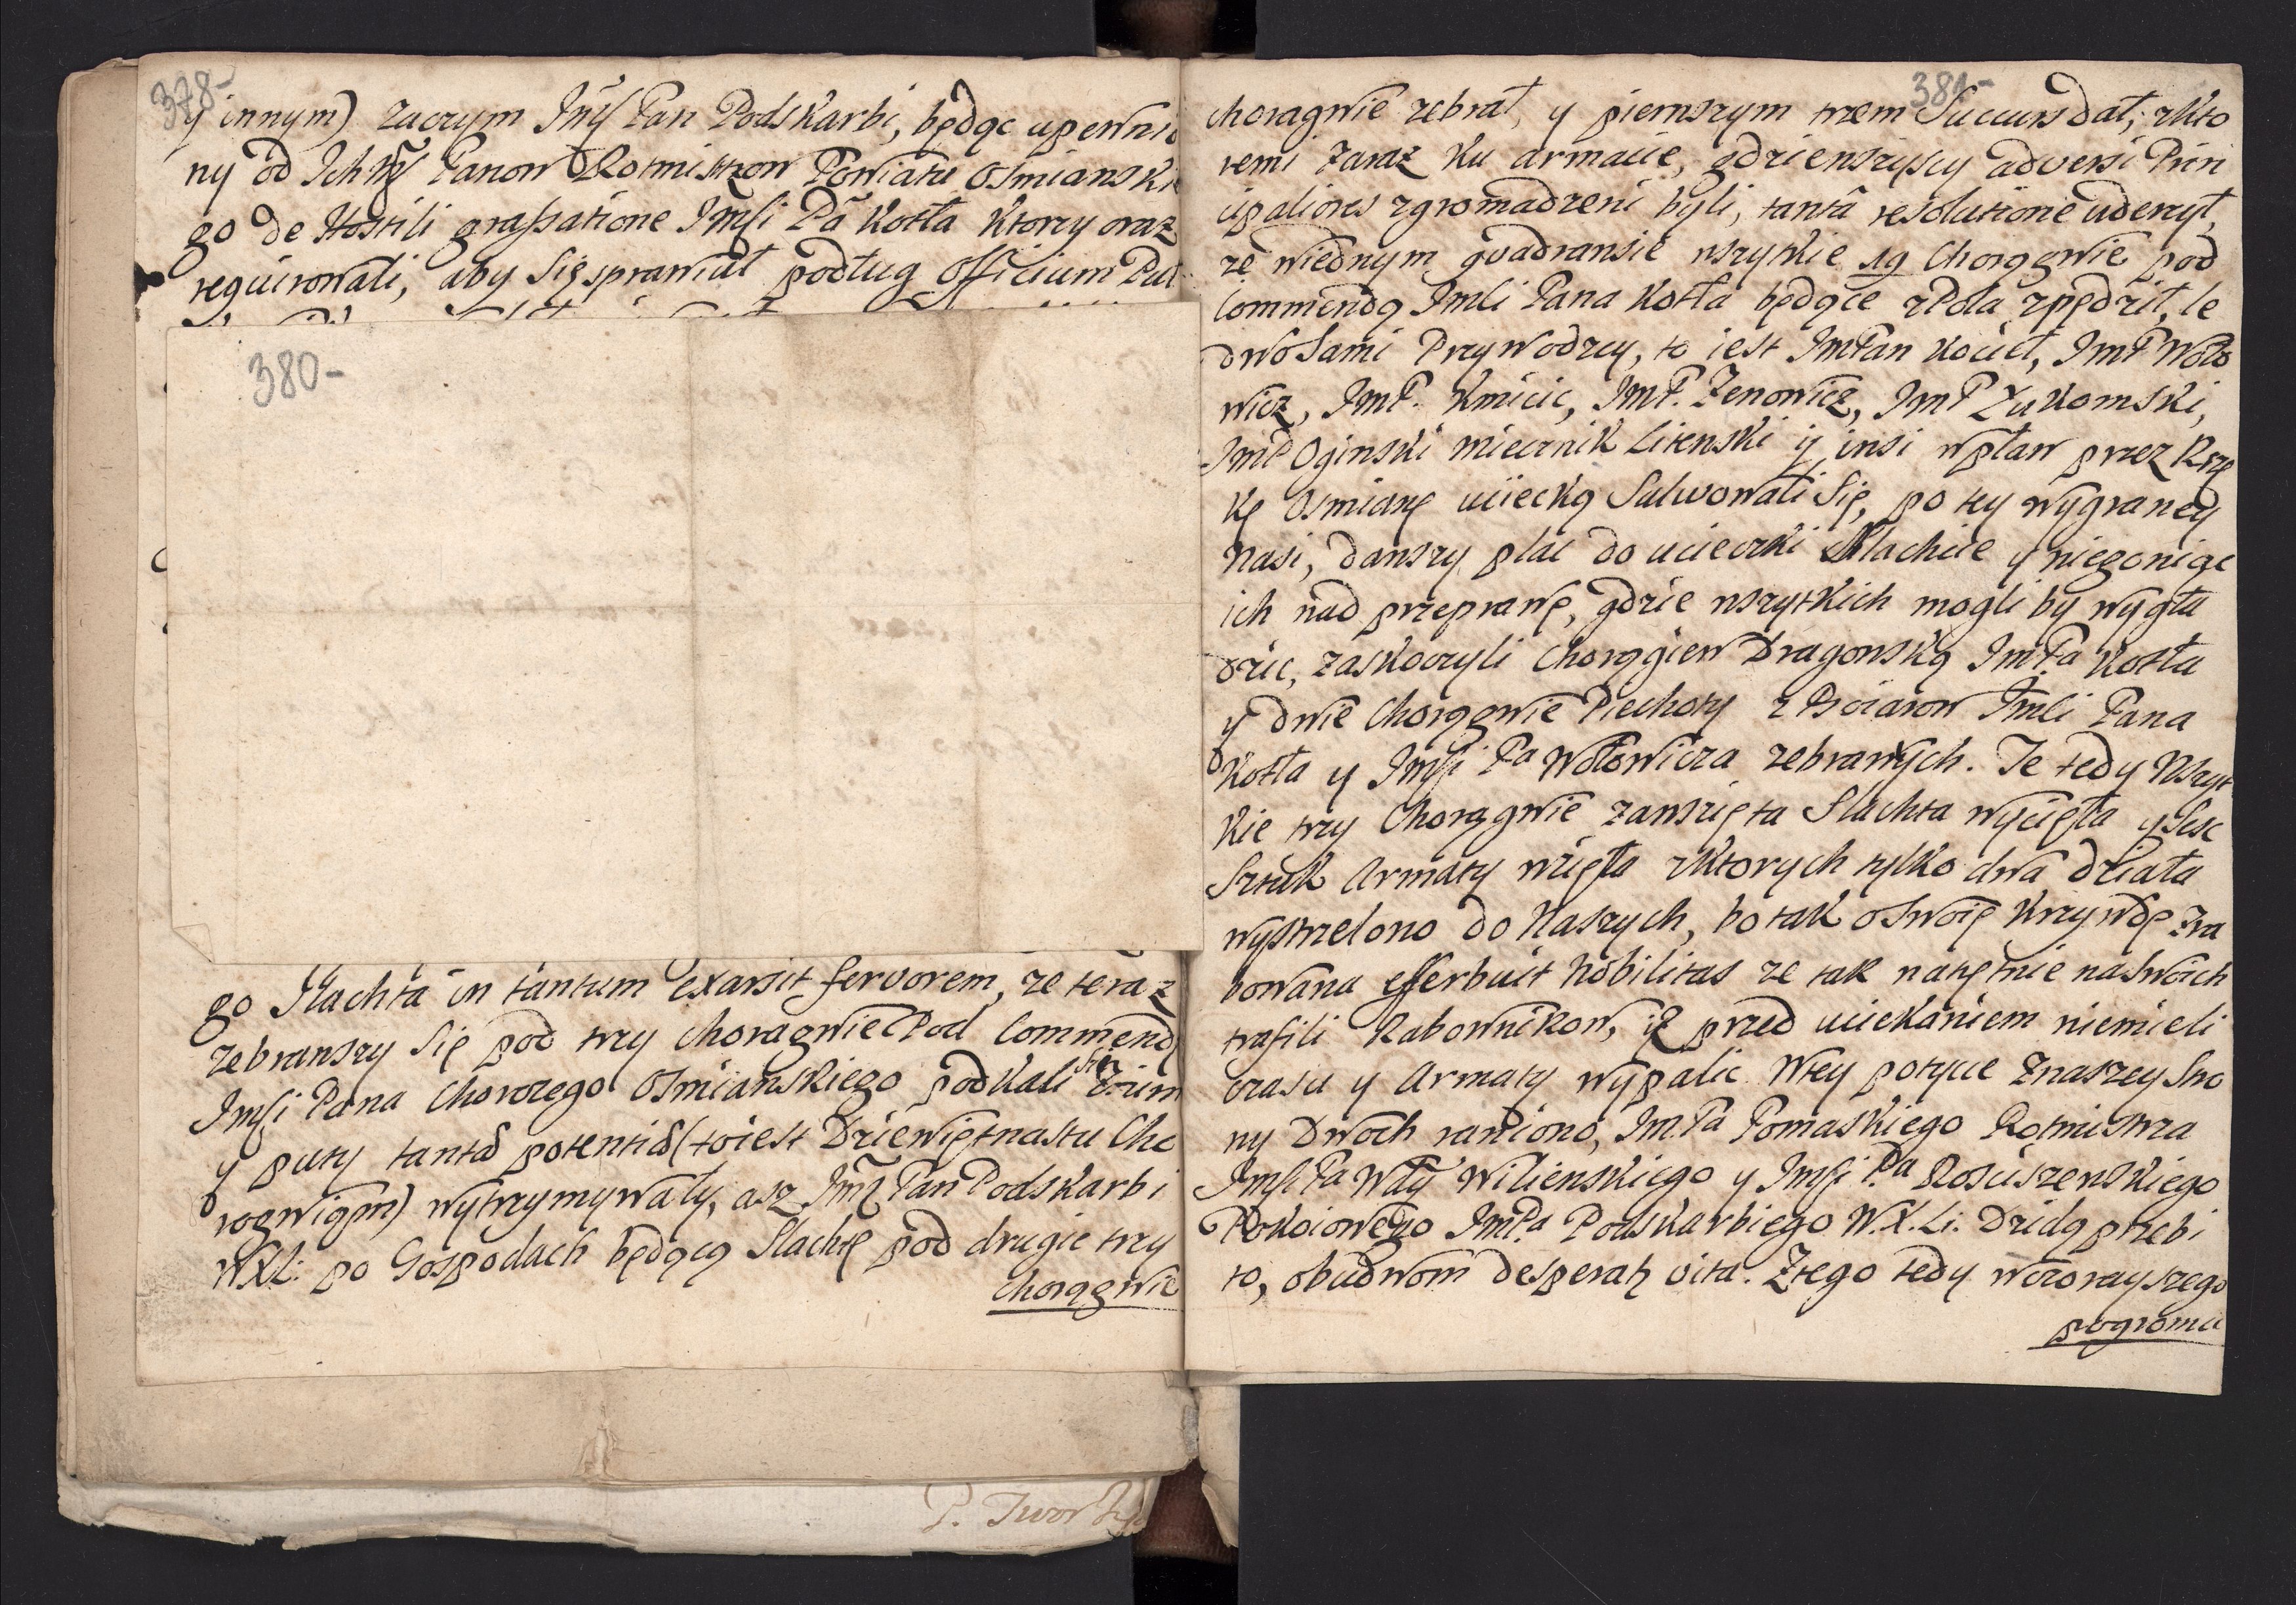 378-
y innym) zaczym Jmś Pan Podskarbi, będąc upewnio
ny od Ich Mś Panow Rotmistrzow Powiatu Osmianskie
go de Hostili grassatione Jmsci Pa Kotła ktorzy oraz
requirowali, aby Się sprawiał podług officium Pul
380-
go Slachta in tantum exarsit fervorem, ze teraz
zebrawszy Się pod trzy choragwie Pod Commendą
Jmsci Pana Chorozego Osmianskiego podkali
y puty tantâ potentiâ (toiest Dziewiętnastu Cho
rogwiąm) wytrzymywały, asz Jmś Pan Podskarbi
WXL: po Gospodach będącą Slachtę pod drugie trzy
chorągwie
P.
381-
choragwie zebrał, y pierwszym trzem Succurs dał, zkto
remi zaraz ku armacie, gdziewszyscy adversi Prin
cipaliores zgromadzeni byli, tantâ resolutione uderzył,
ze wiednym quadransie wszytkie 19 Chorągwie pod
Commendą Jmsci Pana Kotła będące zPola zpędził, le
dwo Sami Przywodzcy, to iest JmPan Kocieł, JmP Woło
wicz, JmP. Kmicic, JmP. Zenowicz, JmP Zukomski,
JmP Oginski Miecznik Litenski y insi wpław przez Rze
kę Osmianę ucieczką Salwowali Się, po tey wygraney
Nasi, dawszy plac do ucieczki Slachcie y niegoniąc
ich nad przeprawę, gdzie wszytkich mogli by wygła
dzic, zaskoczyli Chorągiew Dragonską JmPa Kotła
y dwie Chorągwie Piechoty z Psciarow Jmsci Pana
Kotła y Jmsci Pa Wołowicza zebranych. Te tedy Wszyt
kie trzy Chorągwie zawzięta Slachta wycięła y Sesc
Sztuk Armaty wzięła zktorych tylko dwa działa
wystrzelono do Naszych, bo tak oSwoię krzywdę zra
bowana efferbuit Nobilitas ze tak natętnie naSwoich
trafili Rabownikow, iż przed uciekaniem niemieli
czasu y Armaty wypalic. Wtey potyce Znaszey Stro
ny Dwoch raniono, Jm.Pa Pomaskiego Rotmistrza
Jmsci Pa Wdy Wilenskiego y Jmsci Pa Rosuszenskiego
Pokoiowego JmPa Podskarbiego W.X.Li. Dzidą przebi
to, obudwom desperatą vita. Ztego tedy wczorayszego
pogromu